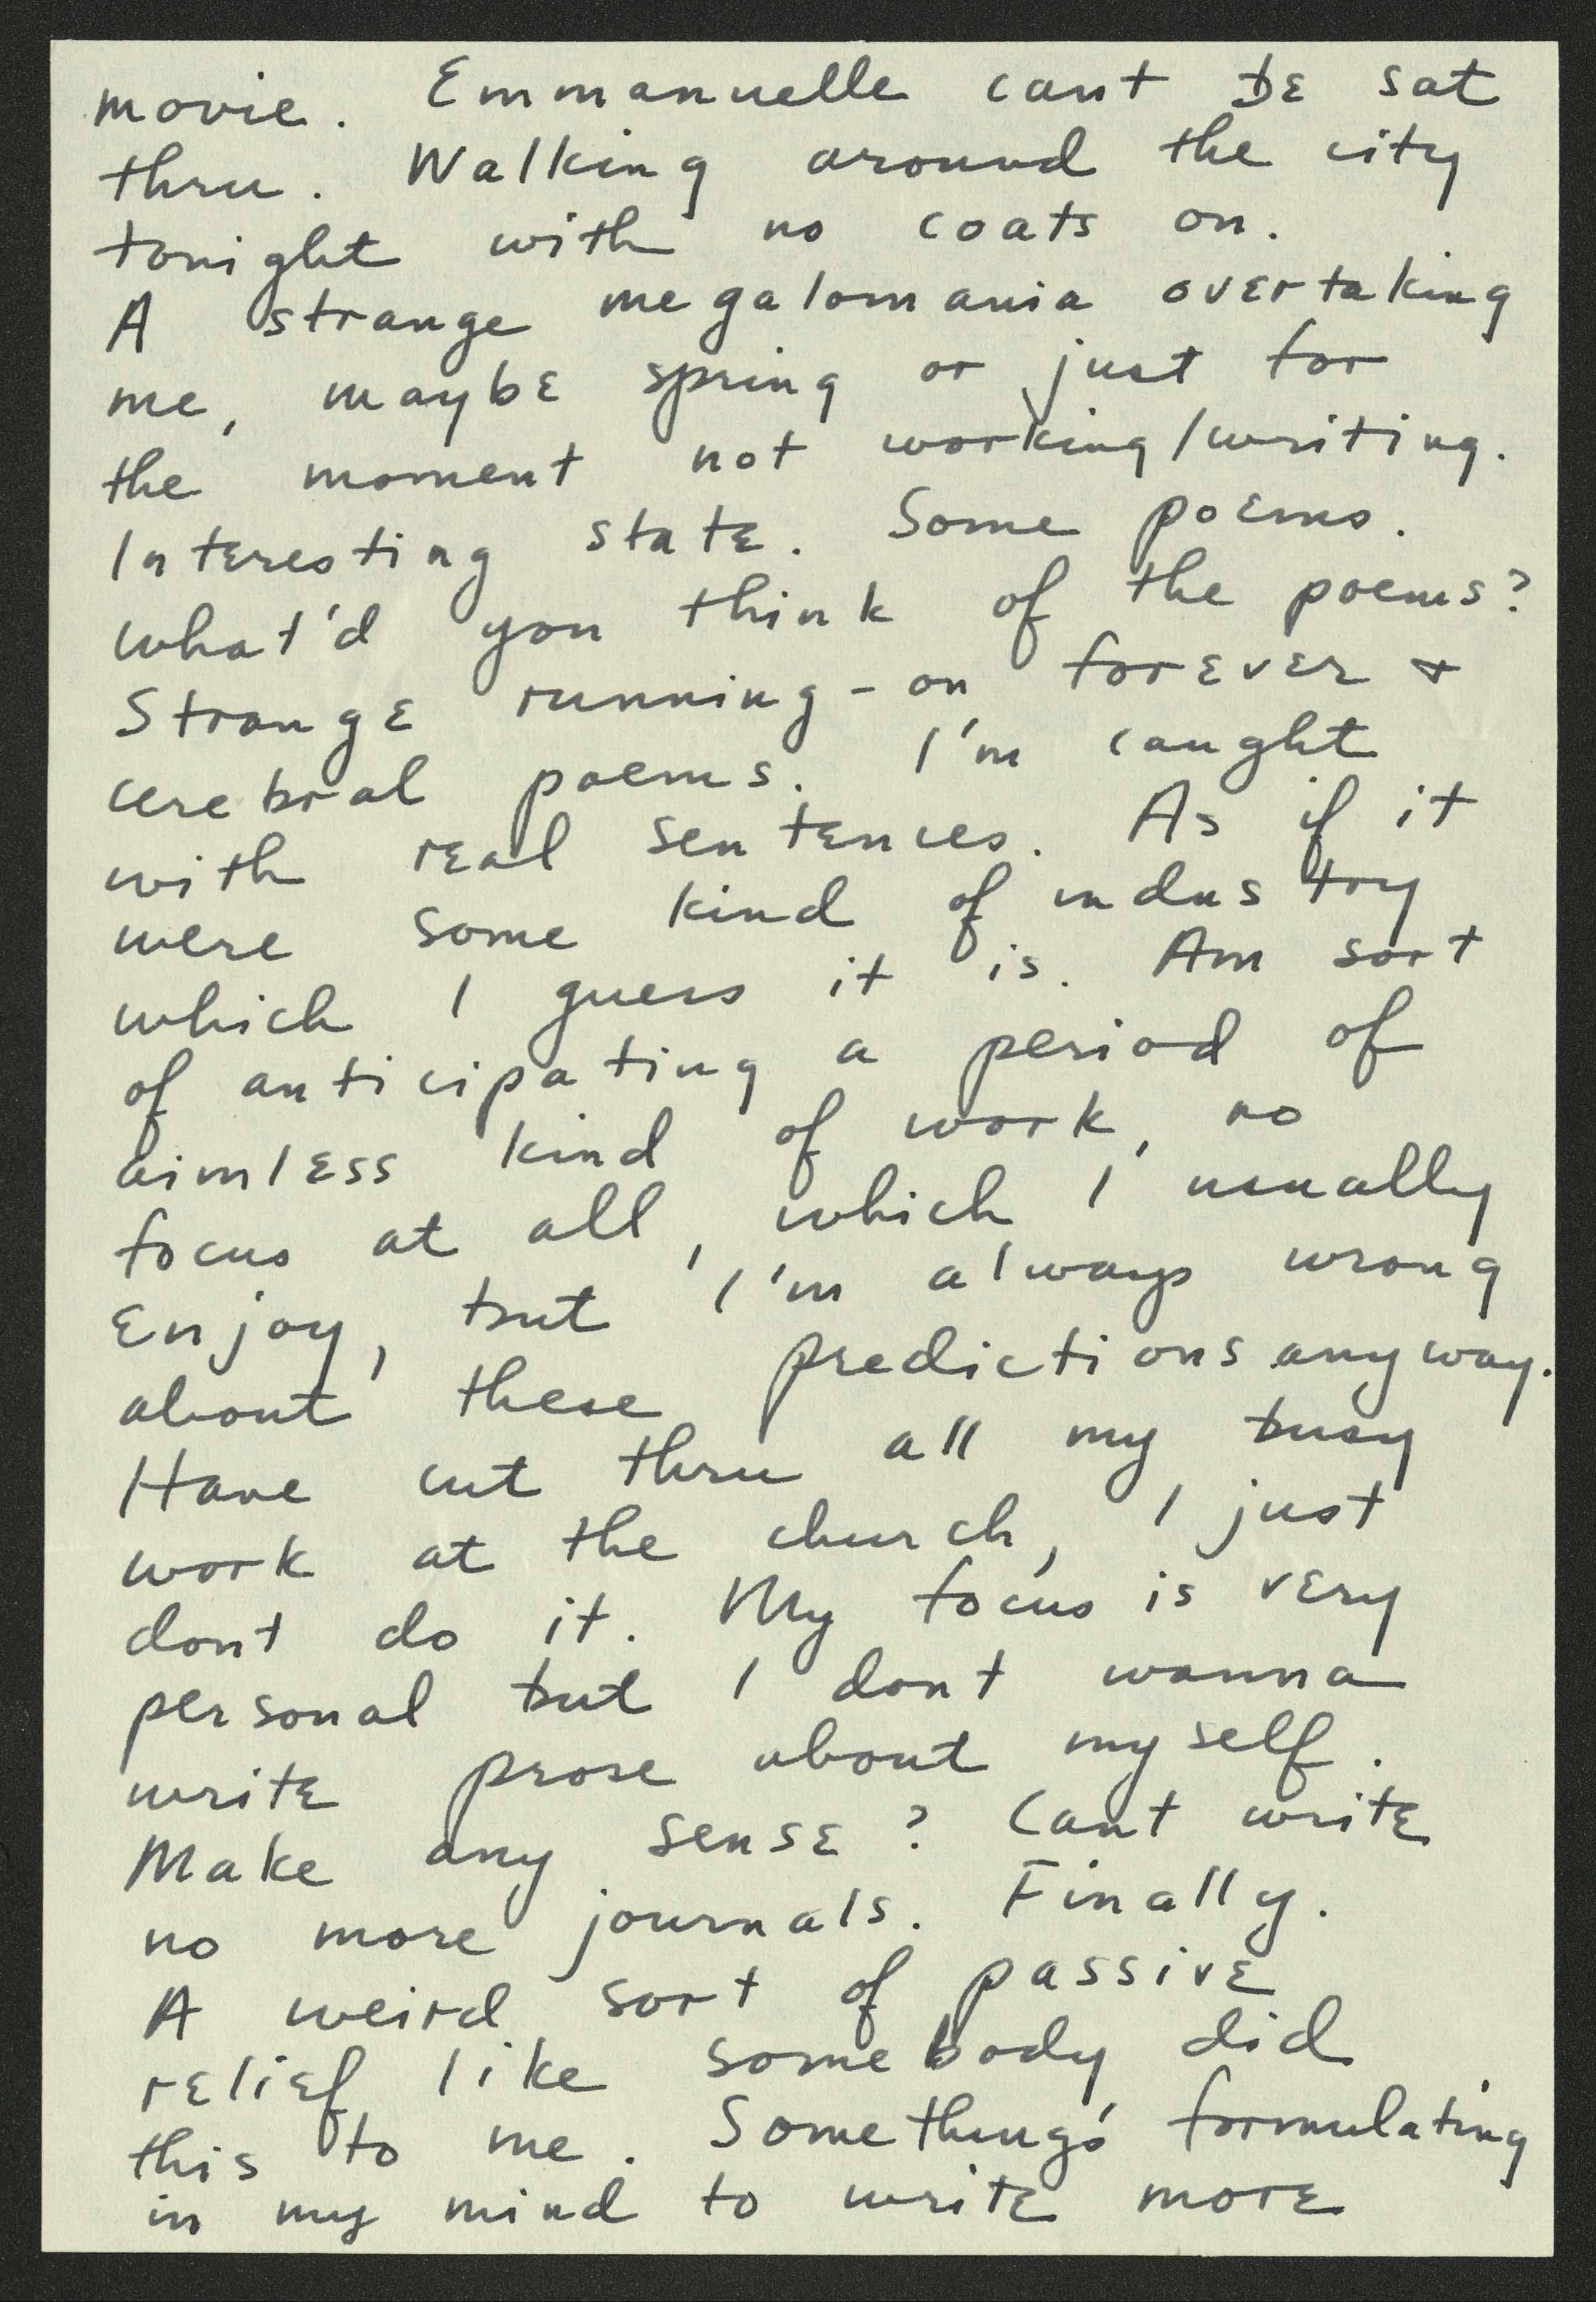 movie. Emmanuelle cant be sat
thru. Walking around the city
tonight with no coats on.
A strange megalomania overtaking
me, maybe spring or just for
the moment not working/writing.
Interesting state. Some poems.
What'd you think of the poems?
Strange running-on forever +
cerebral poems. I'm caught
with real sentences. As if it
were some kind of industry
which I guess it is. Am sort
of anticipating a period of
aimless kind of work, no
focus at all, which I usually
enjoy, but I'm always wrong
about these predictions anyway.
Have cut thru all my busy
work at the church, I just
dont do it. My focus is very
personal but I dont wanna
write prose about myself.
Make any sense? Cant write
no more journals. Finally.
A weird sort of passive
relief like somebody did
this to me. Something's formulating
in my mind to write more